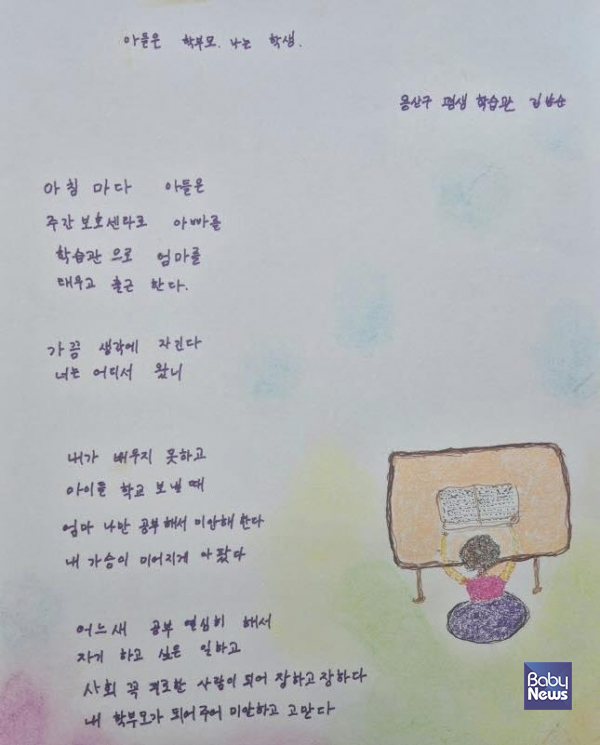 아들은 학부모. 나는 학생.
용산구 평생 학습관 김방순
아침 마다 아들은
주간보호센타로 아빠를
학습관 으로 엄마를
태우고 출근 한다.
가끔 생각에 잠긴다
너는 어디서 왔니
내가 배우지 못하고
아이를 학교 보낼 때
엄마 나만 공부해서 미안해 한다
내 가슴이 미어지게 아팠다
어느새 공부 열심히 해서
자기 하고 싶은 일하고
사회 꼭 필요한 사람이 되어 장하고 장하다
내 학부모가 되어주어 미안하고 고맙다
Baby
News